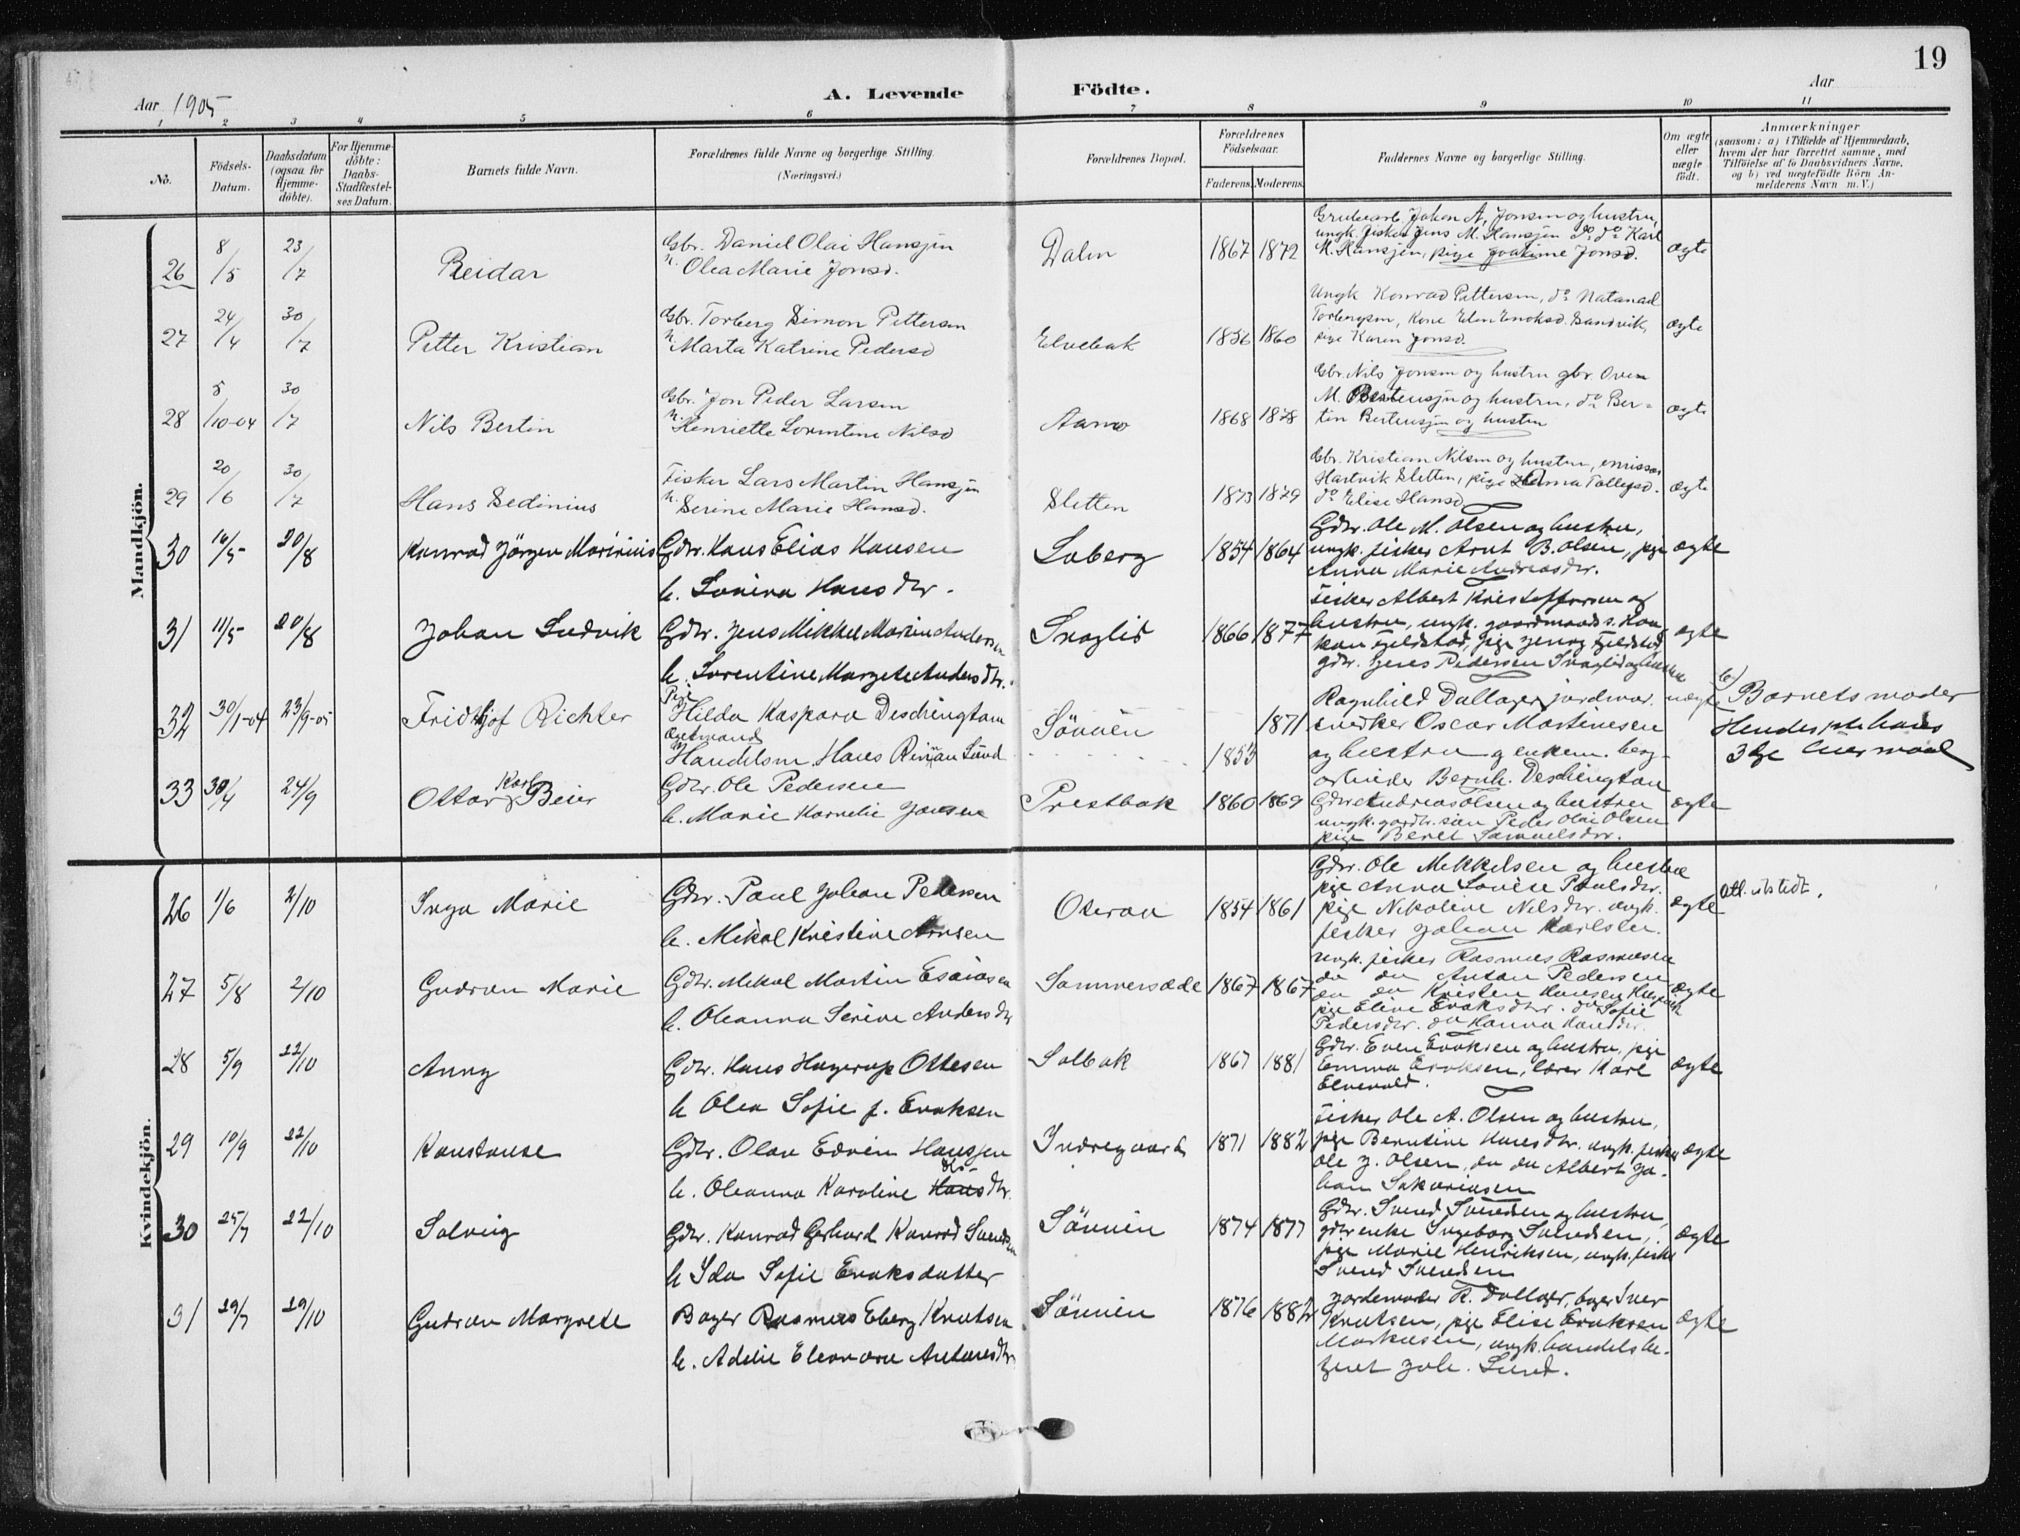 19
Aar 1905
A. Levende Födte.
Aar
1 2 3 4 5 6 7 8 9 10 11
No.
Födsels-
Datum.
Daabsdatum
(ogsaa for
Hjemme-
döbte).
For Hjemme-
döbte:
Daabs-
Stadfæstel-
ses Datum.
Barnets fulde Navn.
Forældrenes fulde Navne og borgerlige Stilling.
(Næringsvei.)
Forældrenes Bopæl.
Forældrenes
Födselsaar.
Faderens. Moderens.
Faddernes Navne og borgerlige Stilling.
Om ægte
eller
uægte
födt.
Anmærkninger
(saasom: a) i Tilfælde af Hjemmedaab,
hvem der har forrettet samme, med
Tilföielse af to Daabsvidners Navne,
og b) ved uægtefödte Börn An-
melderens Navn m. V.)
Mandkjön.
26 8/5 23/7 Reidar
Gbr. Daniel Olai Hansjen
h. Olea Marie Jonsd.
Dalen 1867 1872
Grubearb. Johan A. Jonsen og hustru,
ungk. fisker Jens M. Hansjen do do Karl
M. Hansjen, pige Joakime Jonsd.
ægte
27 24/4 30/7 Petter Kristian
Gbr. Torberg Simon Pettersen
h. Marta Katrine Pedersd
Elvebak 1856 1860
Ungk Konrad Pettersen, do Natanael
Torbergsen, Kone Elen Enoksd. Sandvik,
pige Karen Jonsd.
ægte
28 5/10-04 30/7 Nils Bertin
Gbr. Jon Peder Larsen
h. Henriette Lorentine Nilsd
Aamo 1868 1878
Gbr. Nils Jonsen og hustru gbr. Oven
M. Bertensjen og hustru, do Ber-
tin Bertensjen og hustru
ægte
29 20/6 30/7 Hans Sedinius
Fisker Lars Martin Hansjen
h. Serine Marie Hansd.
Sletten 1873 1879
Gbr. Kristian Nilsen og hustru, emissær
Hartvik Sletten, pige Anna Tollefsd.
do Elise Hansd
ægte
30 16/5 20/8 Konrad Jörgen Marinius
Gdbr. Hans Elias Hansen
h. Lovina Hansdtr.
Loberg 1854 1864
Gdbr. Ole M. Olsen og hustru,
ungk. fisker Arnt B. Olsen, pige
Anna Marie Andreasdtr.
ægte
31 11/5 20/8 Johan Ludvik
Gdbr. Jens Mikkel Marius Andersen
h. Lorentine Margrete Andersdtr.
Snoglid 1866 1877
Fisker Albert Kristoffersen og
hustru, ungk. gaardmands s. Haa-
kon Fjeldstad, pige Jenny Fjeldstad
gdbr. Jens Pedersen Snoglid og hustru
ægte
32 30/1-04 23/9-05 Fridthjof Richter
Pige Hilda Kaspara Deschingtam
Egtemand
Handelsm Hans Rinnan Lund
Sövien 1853 1871
Ragnhild Dallager jordmor
snedker Oscar Mortensen
og hustru g enkem. berg-
arbeider Bernh. Deschington
uægte
b) Barnets moder
Hendes
3dje leiermaal
33 30/4 24/9 Ottar Karl Beier
Gdbr. Ole Pedersen
h. Marie Kornelie Jonsen
Prestbak 1860 1869
Gdbr Andreas Olsen og hustru
ungk. gardbr. sön Peder Olai Olsen
pige Beret Samuelsdtr.
ægte
Kvindekjön.
26 1/6 2/10 Inga Marie
Gdbr. Paul Johan Pedersen
h. Mikal Kristine Arnsen
Oteraa 1854 1861
Gdbr. Ole Mikkelsen og hustru
pige Anna Lovise Paulsdtr.
pige Nikoline Nilsdtr. ungk.
fisker Johan Karlsen.
ægte
Att. utstedt.
27 5/8 2/10 Gudrun Marie
Gdbr. Mikal Martin Esaiasen
h. Oleanna Serine Andersdtr
Sommersæde 1867 1867
Ungk. fisker Rasmus Rasmusen
do do Anton Pedersen
do do Kristen Hansen
pige Eline Enoksdtr. do Sofie
Pedersdtr. do Hanna Hansdtr.
ægte
28 5/9 22/10 Anny
Gdbr. Hans Hagerup Ottesen
h Olea Sofie f. Enoksen
Solbak 1867 1881
Gdbr. Even Enoksen og hustru, pige
Emma Enoksen, lærer Karl
Elvevold.
ægte
29 10/9 22/10 Konstanse
Gdbr. Olav Edvin Hansjen
h. Oleanna Karoline Hansdtr.
Indregaard 1871 1882
Fisker Ole A. Olsen og hustru,
pige Berntine Hansdtr. ungk. fisker
Ole J. Olsen, do do Albert Jo-
han Sakariasen
ægte
30 25/7 22/10 Solveig
Gdbr. Konrad Gerhard Konrad Svendsen
h Ida Sofie Enoksdatter
Sövien 1874 1877
Gdbr. Svend Svendsen og hustru,
gdbr enke Ingeborg Svendsen,
pige Marie Henriksen, ungk. fisker
Svend Svendsen
ægte
31 29/7 29/10 Gudrun Margrete
Bager Rasmus Eberg Knutsen
h. Adele Eleonora Antonsdtr
Sövien 1876 1882
Jordemoder R. Dallager, bager Iver
Knutsen, pige Elise Enoksen
Markusen, ungk. handelsbe-
tjent Joh. Lund.
ægte